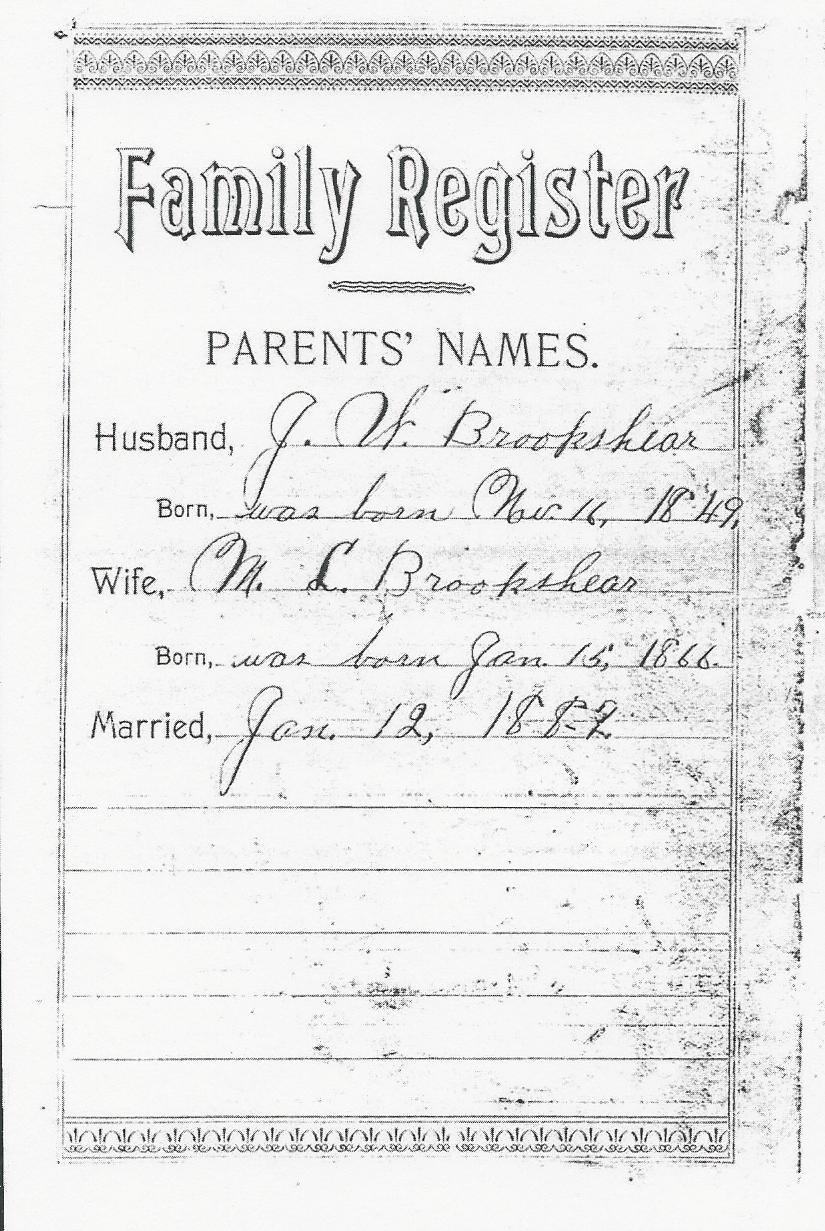 Family Register
PARENTS' NAMES.
Husband, J. W. Brookshear
Born, was born Nov. 16, 1849.
Wife, M. L. Brookshear
Born, was born Jan. 15, 1866.
Married, Jan. 12, 1882